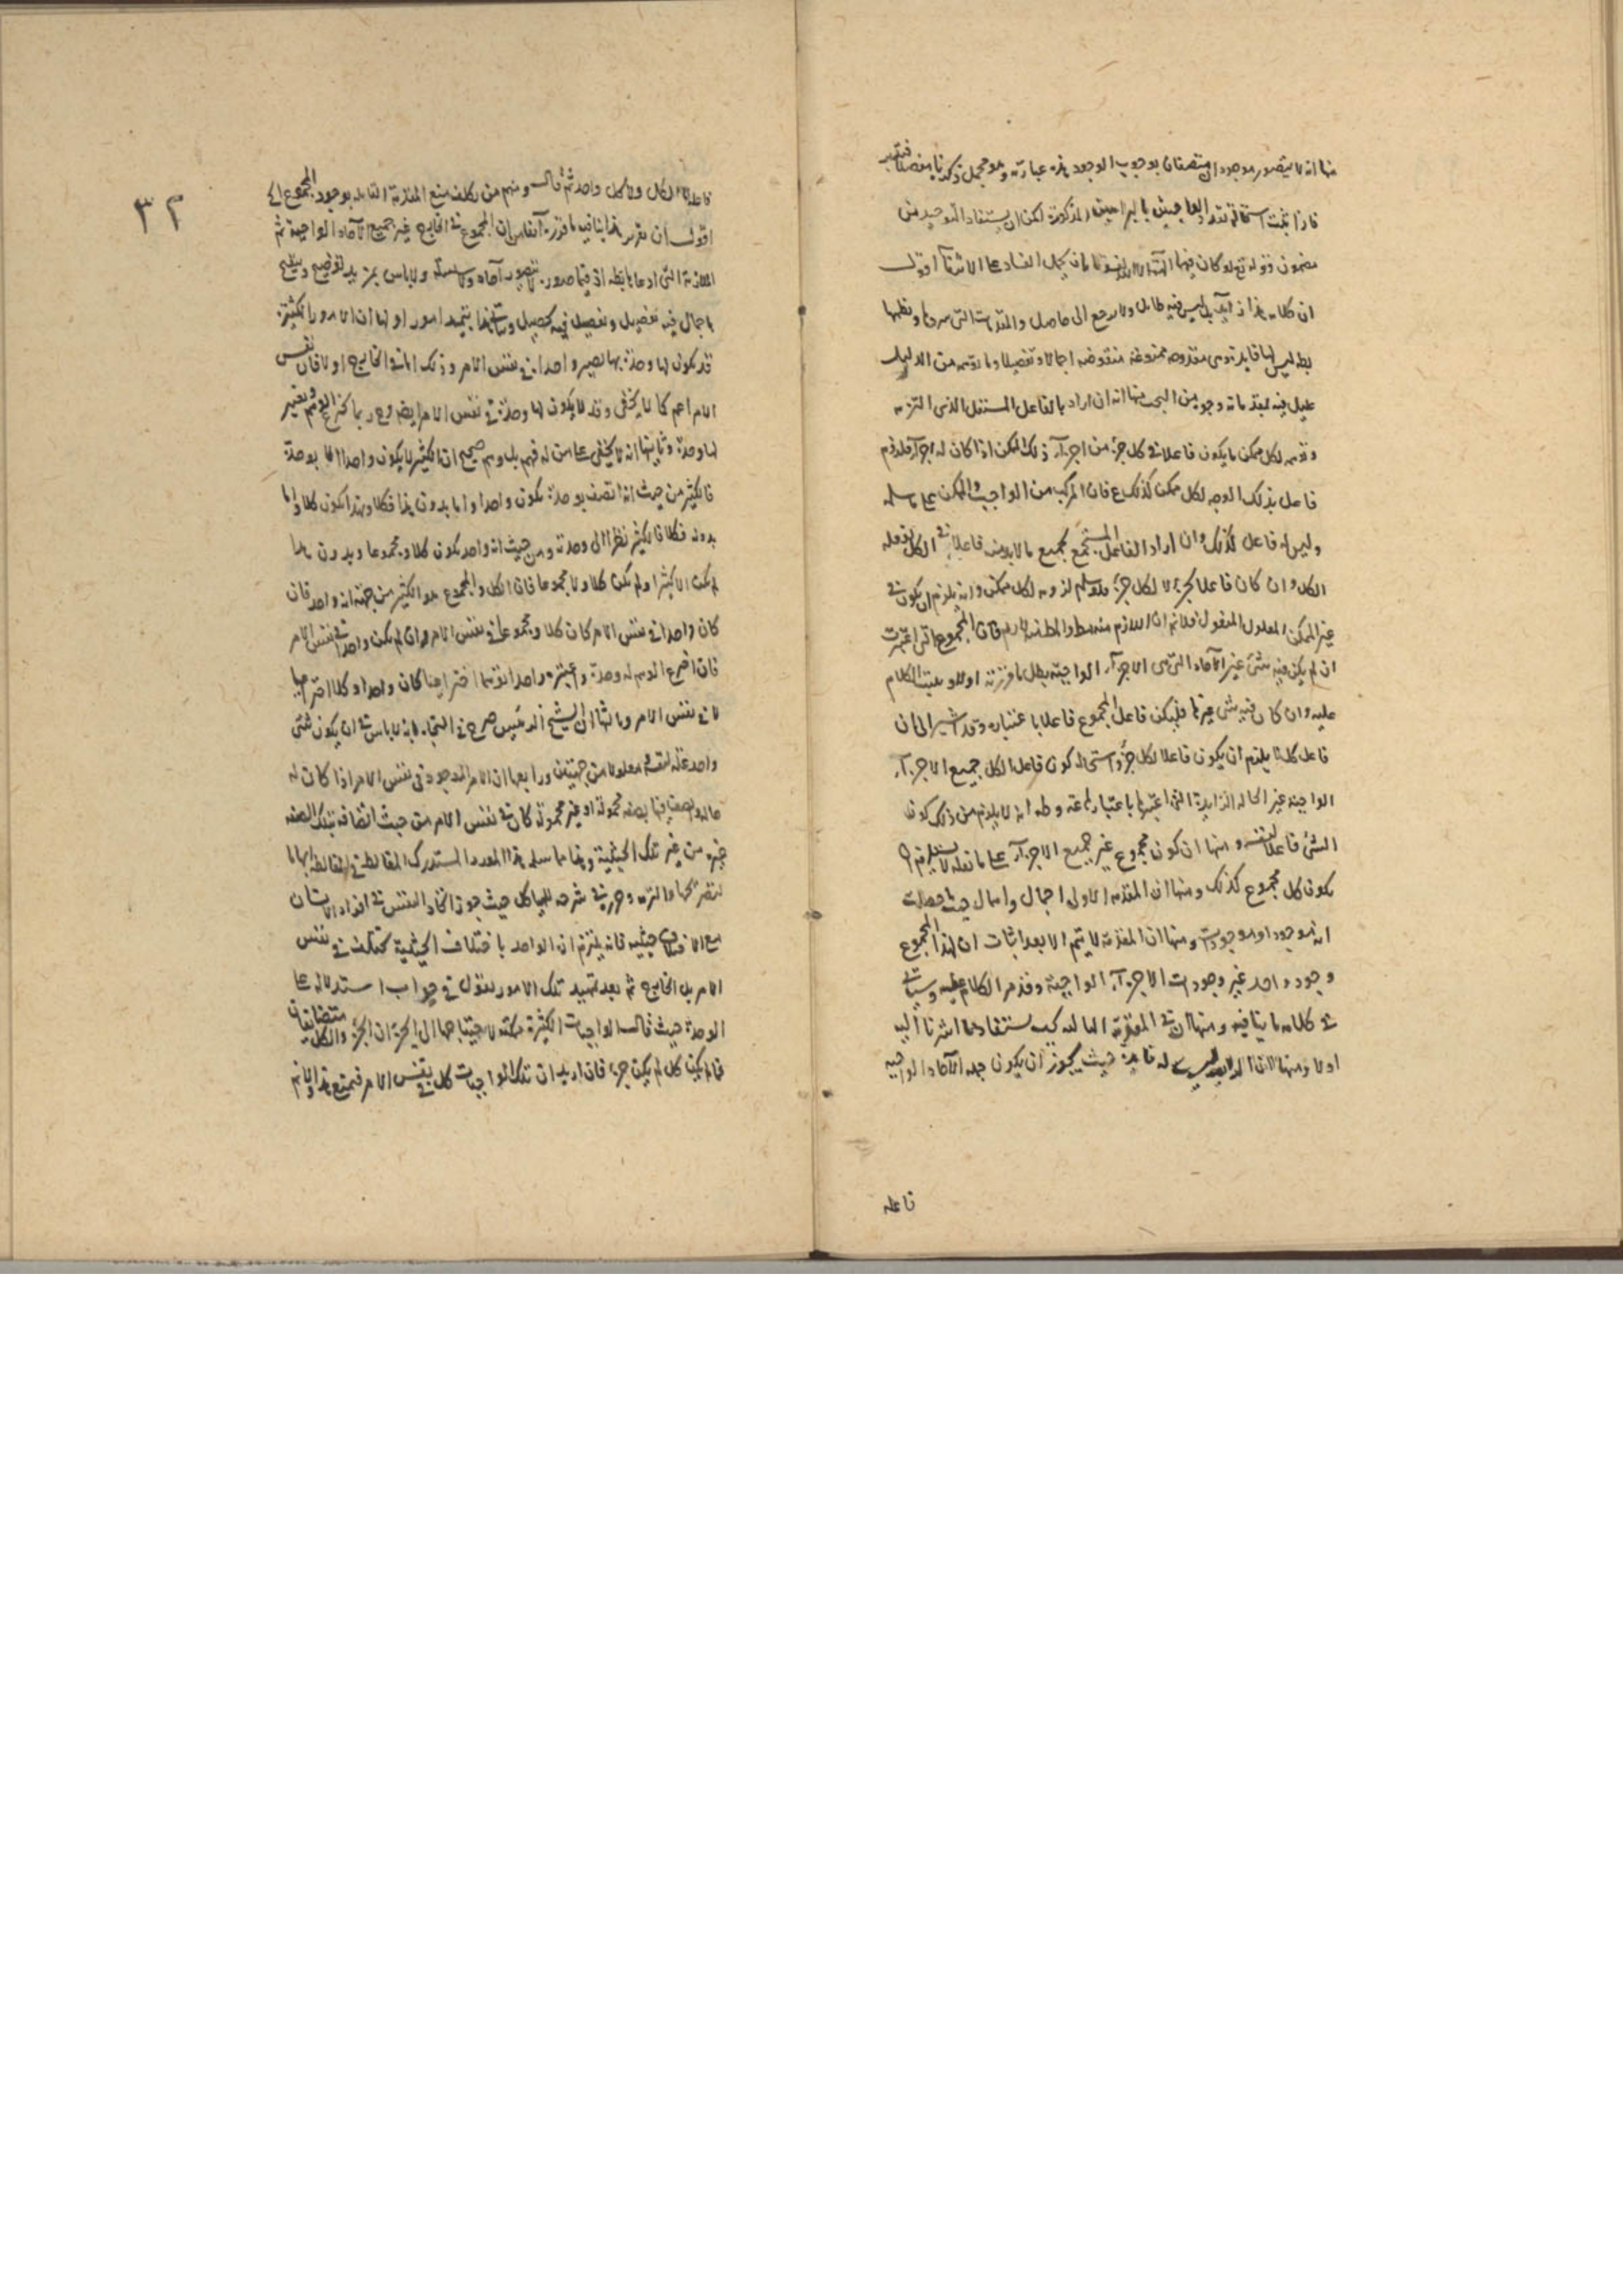 منها انه لا يتصور موجودان متصفان بوجوب الوجود هذه عبارته وهو مجمل ذكرنا مفصلا فتدبر
فاذا ثبت استحالة تعدد الواجبين بالبراهين المذكورة لكن ان يستفاد التوحيد من
مضمون قوله تع لو كان فيهما آلهة الا الله لفسدتا بان يحمل الفساد على الانتفاء اقول
ان كلامه هذا ليس فيه طائل ولا يرجع الى حاصل والمقدمات التى
بط ليس لها فايدة وهى مقدوحة ممنوعة منقوضة اجمالا وتفصيلا وما من الدليل
عليل فيه لمقدماته وجوه من البحث منها انه ان اراد بالفاعل المستقل الذى التزمه
لكل ممكن ما يكون فاعلا فى كل جزء من اجزاء ذلك الممكن اذا كان له اجزاء فلزوم
فاعل بذلك الوجه لكل ممكن كذلك ع فان المركب من الواجب والممكن على ما سلمه
وليس له فاعل كذلك وان اراد الفاعل المستجمع لجميع ما لا بد منه فاعلا فى الكل
الكل وان كان فاعلا لجزء لا لكل جزء فلو سلم لزومه لكل ممكن وانه يلزم ان يكون فى
غير الممكن المعلول المنقول فلا نم ان اللازم بط فان المجموع التى اعتبرت
ان لم يكن فيه شىء غير الآحاد التى هى الاجزاء الواجبة بطل ما قررته اولا و الكلام
عليه وان كان فيه شىء غيرها فليكن فاعل المجموع فاعلا باعتباره وقد اشير الى ان
فاعل كل لا يلزم ان يكون فاعلا لكل جزء واستحالة كون فاعل الكل جميع الاجزاء
الواجبة غير الحالة الزايدة التى اعتبرها باعتبارها انه لا يلزم من ذلك كون
الشىء فاعلا لنفسه ومنها ان كون مجموع غير جميع الاجزاء على ما نقله لا يستلزم ان
يكون كل مجموع كذلك ومنها ان المقدمة الاولى اجمال واهمال حيث
انه موجود او موجودات ومنها ان المقدمة لا يتم الا بعد اثبات ان لهذا المجموع
وجود واحد غير وجودات الاجزاء الواجبة وقد مر الكلام عليه وسياتى
فى كلامه ما ينافيه ومنها ان فى المقدمة الثالثة كيت يستفاد مما اشرنا اليه
اولا ومنها ان ليس له فايدة حيث يجوز ان يكون جملة الآحاد الواجبة
فاعله
٣٢
فاعله لا لكل ولا لكل واحد ثم قال ومنهم من تكلف منع المقدمة القايلة بوجود المجموع الخ
اقول ان تقرير هذا ينافيه ما قرره آنفا من ان المجموع فى الخارج غير جميع الآحاد الواجبة ثم
الملازمة التى ادعاها بط ولا باس بمزيد توضيح وتنقيح
باجمال فيه تفصيل وتفصيل فيه تحصيل ولنمهد امور اولها ان الامور الكثيرة
قد يكون لها وحدة بها تصير واحدا فى نفس الامر وذلك اما فى الخارج او لا فان نفس
الامر اعم كما لا يخفى وقد لا يكون لها وحدة فى نفس الامر ايضا وح ربما يخترع الوهم ويعتبر
لها وحدة وثانيها انه لا يخفى على من له فهم بل وهم صحيح ان الكثير لا يكون واحدا الا بوحدة
فالكثير من حيث انه اتصف بوحدة يكون واحدا واما بدون هذا فكلا وبهذا يكون كلا واما
بدونه فكلا فالكثير نظرا الى وحدته ومن حيث انه واحد يكون كلا ومجموعا وبدون هذا
لم يكن الا كثيرا ولم يكن كلا ولا مجموعا فان الكل والمجموع هو الكثير من جهة انه واحد فان
كان واحدا فى نفس الامر كان كلا ومجموعا فى نفس الامر وان لم يكن واحدا فى نفس الامر
فان اخترع الوهم له وحدة واعتبره واحدا توهما اختراعيا كان واحدا وكلا اختراعيا
لا فى نفس الامر وثالثها ان الشيخ الرئيس صرح فى النجاة بانه لا باس فى ان يكون شىء
واحد علة لنفسه ومعلولا من جهتين ورابعها ان الامر الموجود فى نفس الامر اذا كان له
حالة واتصف فيها بصفة محمولة او غير محمولة كان فى نفس الامر من حيث اتصافه بتلك الصفة
غيره من غير تلك الحيثية وهذا مما سلمه هذا المستدرك المغالط فى
والتزمه وحرره فى شرحه للهياكل حيث جوز اتحاد النفس فى افراد الانسان
مع الاختلاف حيثيه فانه يلتزم ان الواحد باختلاف الحيثية يختلف فى نفس
الامر بل الخارج ثم بعد تمهيد تلك الامور نقول فى جواب استدلاله على
الوحدة حيث قال الواجبات الكثيرة ممكنة لاحتياجها الى الجزء ان الجزء والكل متضايفان
فما لم يكن كل لم يكن جزء فان اريد ان تلك الواجبات كل فى نفس الامر فيمتنع هذا ولا نم